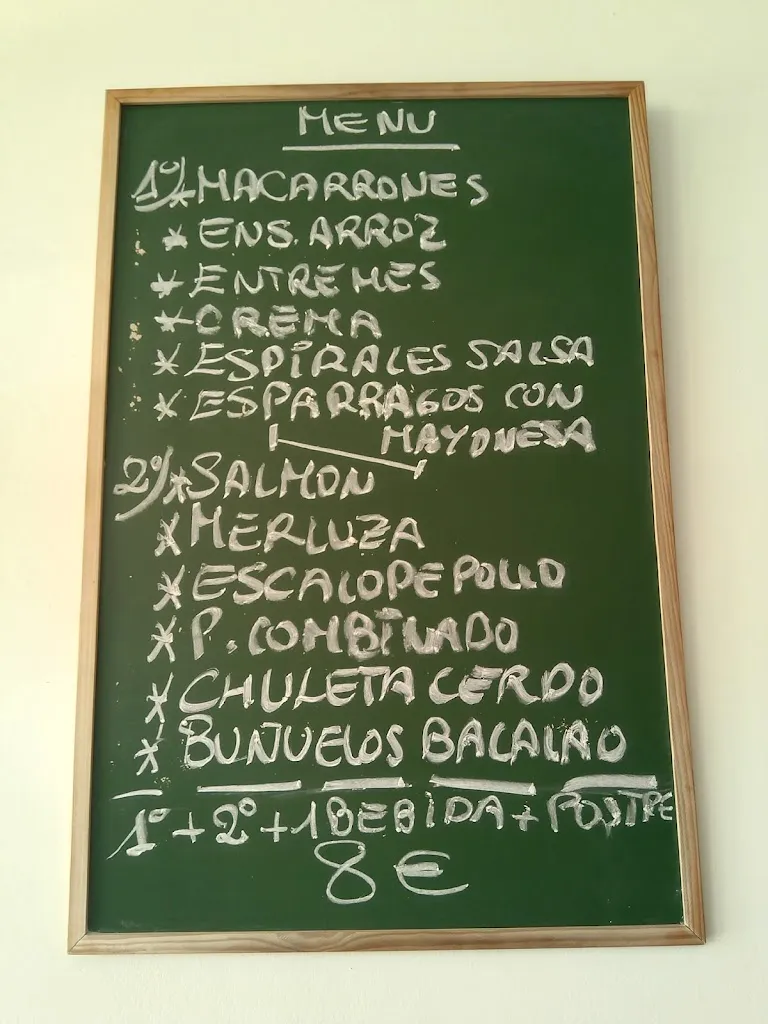 MENU
1º/* MACARRONES
* ENS. ARROZ
* ENTREMES
* CREMA
* ESPIRALES SALSA
* ESPARRAGOS CON
MAYONESA
2º/* SALMON
* MERLUZA
* ESCALOPE POLLO
* P. COMBINADO
* CHULETA CERDO
* BUÑUELOS BACALAO
1º + 2º + 1 BEBIDA + POSTRE
8 €